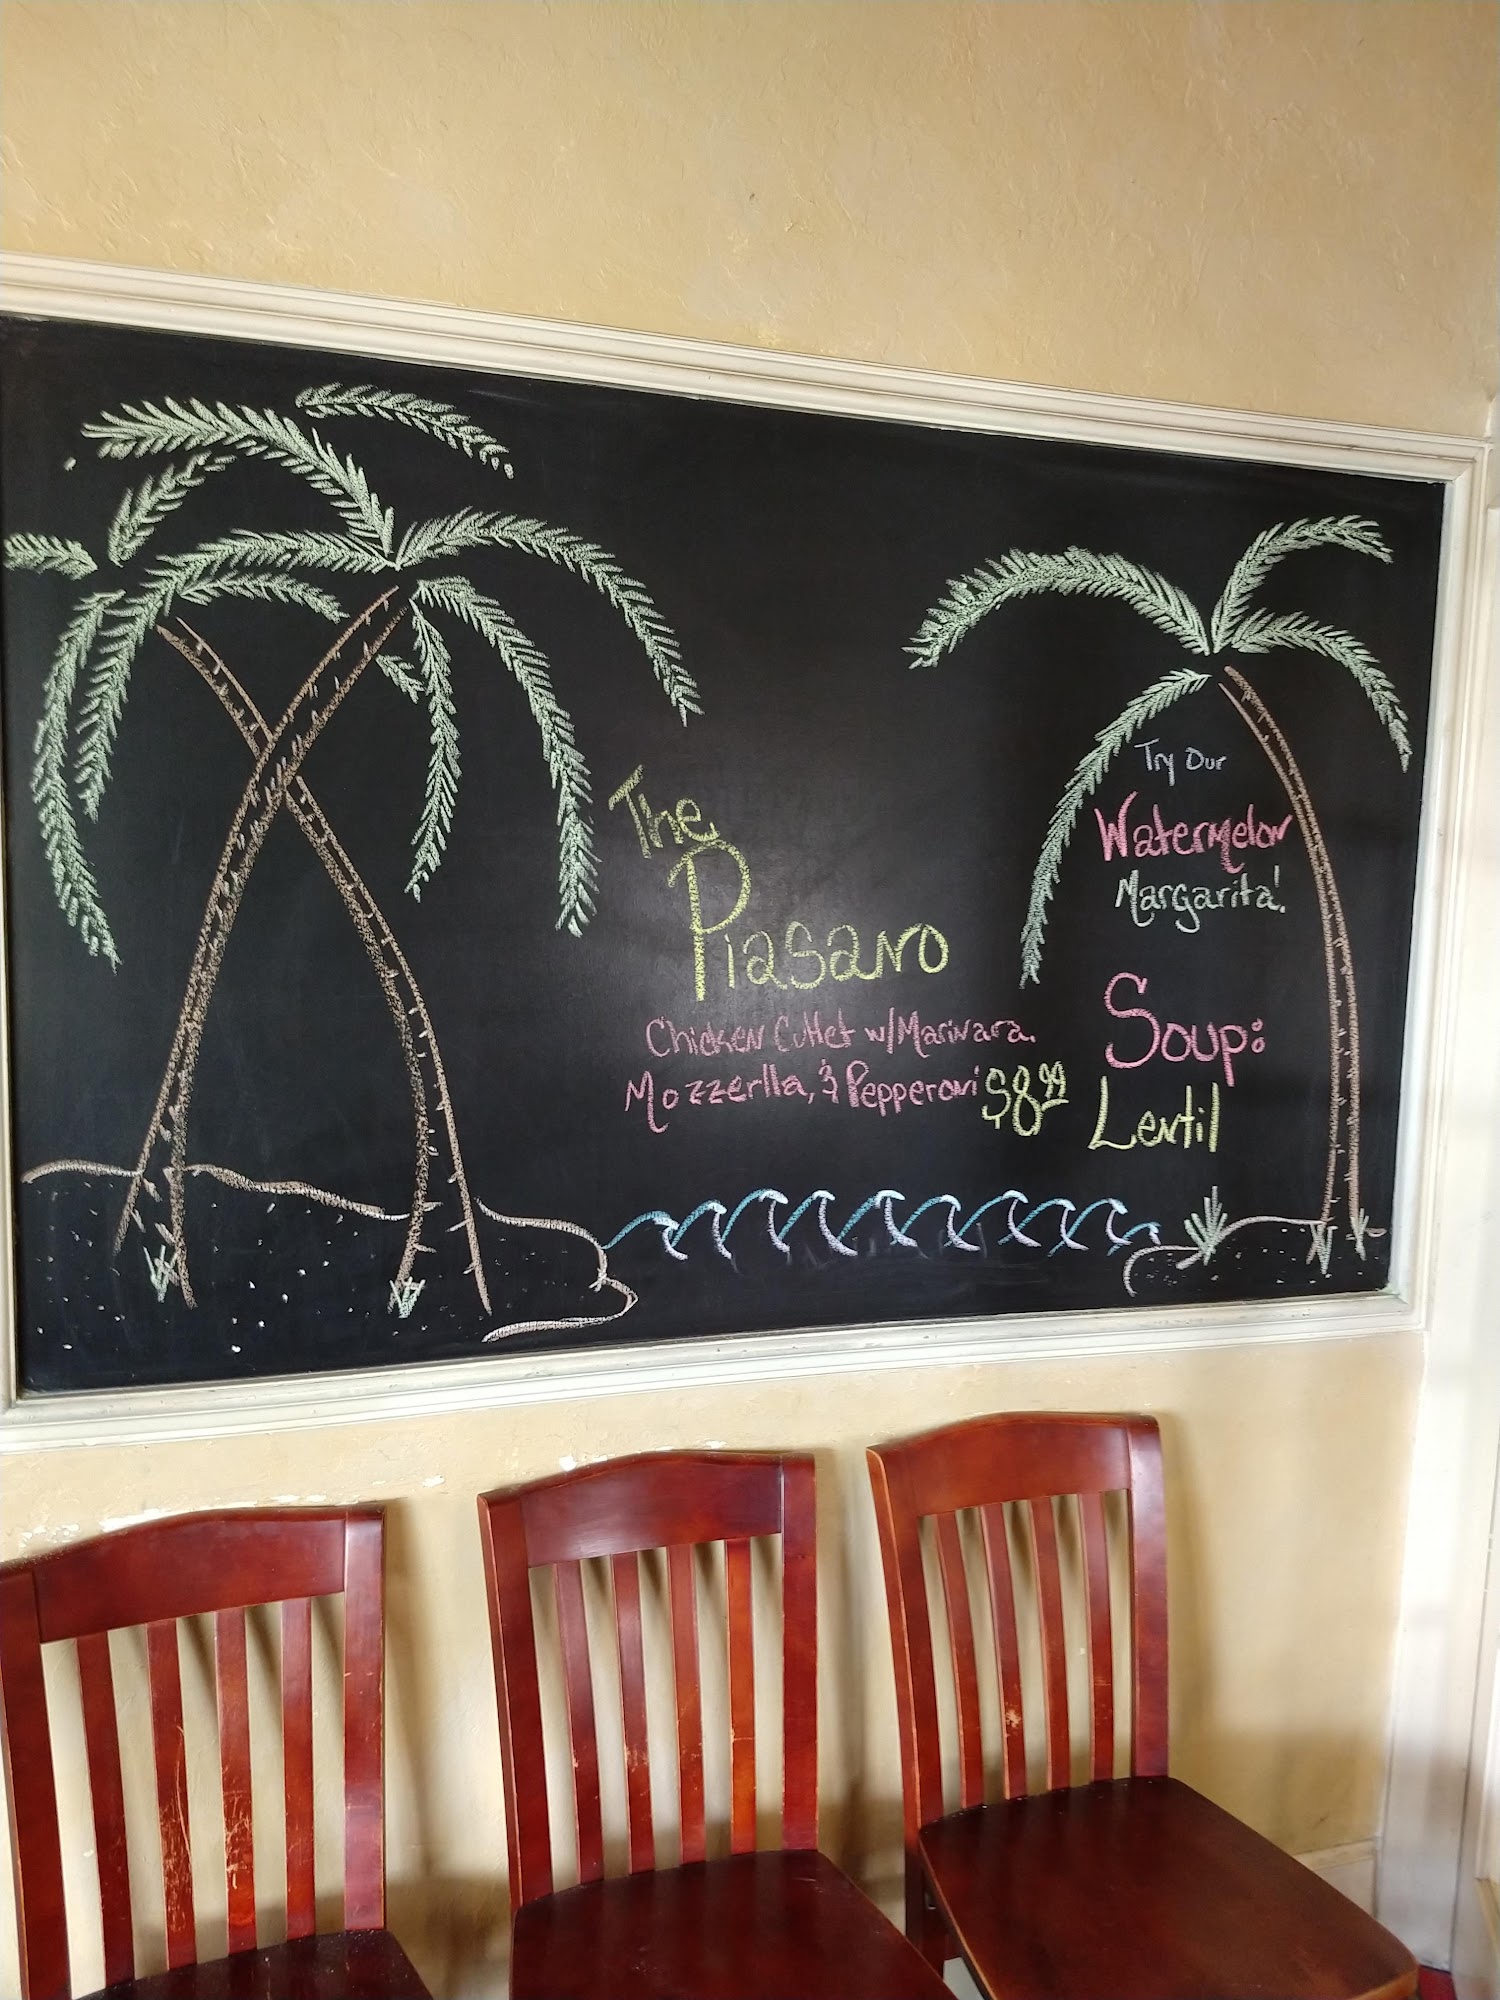 The
Piasano
Chicken Cutlet w/Marinara.
Mozzerlla, & Pepperoni $8.99
Try Our
Watermelon
Margarita!
Soup:
Lentil